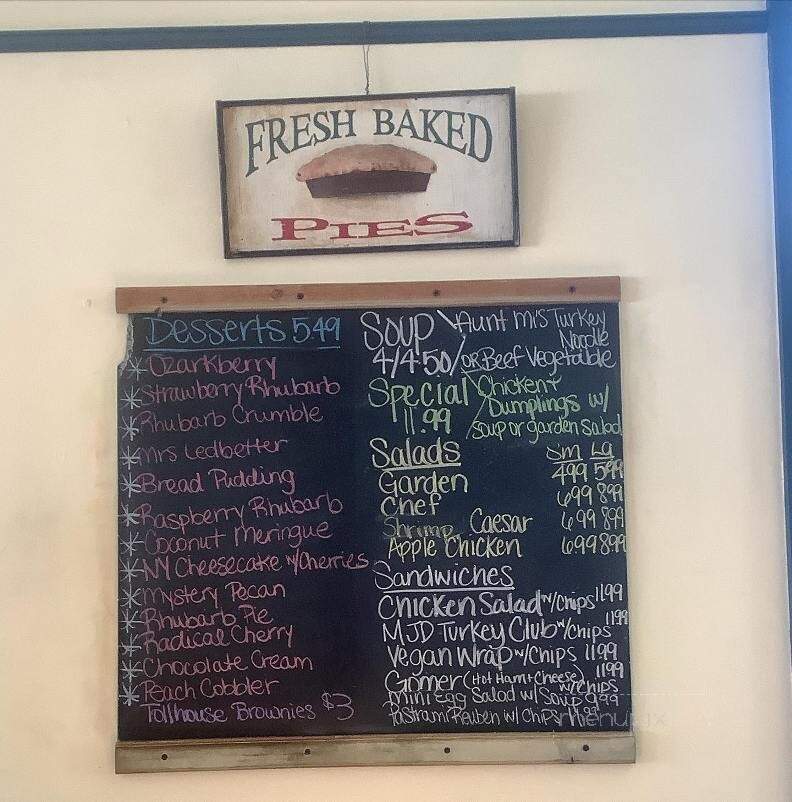 FRESH BAKED
PIES
Desserts 5.49
*Ozarkberry
*Strawberry Rhubarb
*Rhubarb Crumble
*Mrs Ledbetter
*Bread Pudding
*Raspberry Rhubarb
*Coconut Meringue
*NY Cheesecake w/Cherries
*Mystery Pecan
*Rhubarb Pie
*Radical Cherry
*Chocolate Cream
*Peach Cobbler
Tollhouse Brownies $3
Soup Aunt Mi's Turkey Noodle
4/4.50/ OR Beef Vegetable
Special Chicken +
11.99 / Dumplings w/
Soup or garden Salad
Salads Sm Lg
Garden 499 599
Chef 699 899
Shrimp, Caesar 699 899
Apple Chicken 699 899
Sandwiches
Chicken Salad w/chips 1199
MJD Turkey Club w/chips 1199
Vegan Wrap w/chips 1199
Gomer (Hot Ham + Cheese) w/chips 1199
Mini Egg Salad w/ Soup 999
Pastrami Reuben w/ Chips
menupix